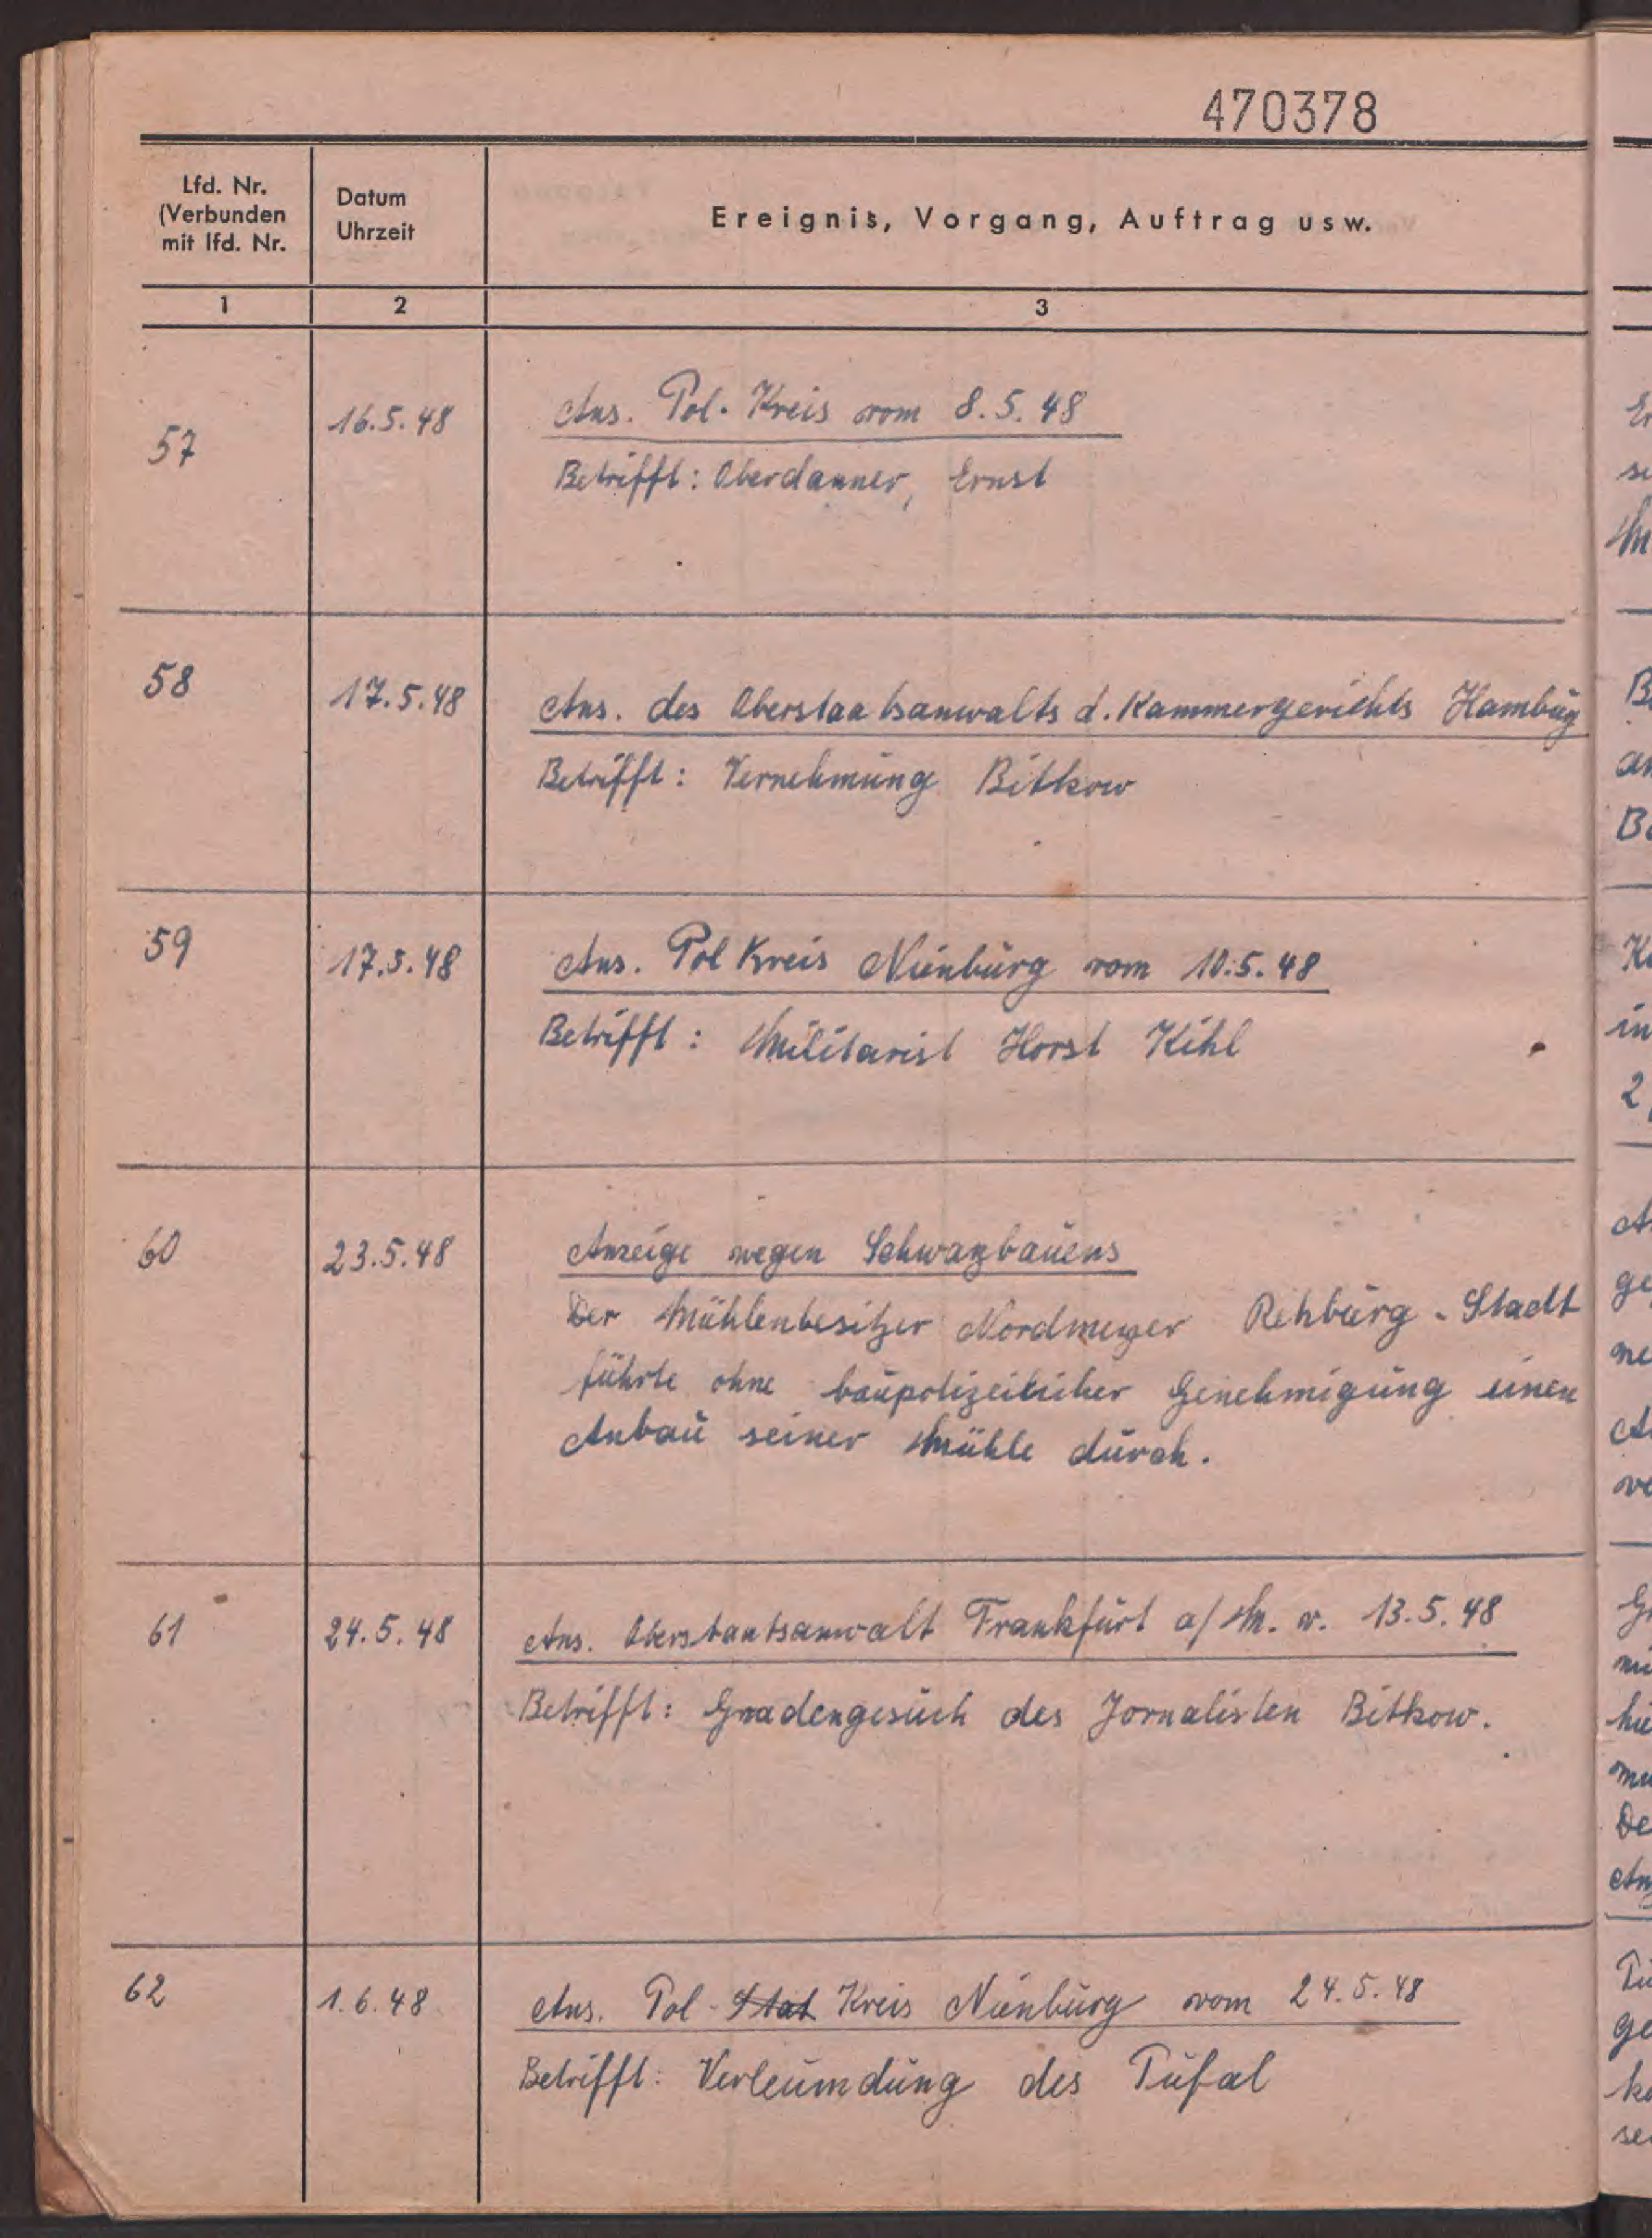 470378
Lfd. Nr.
(Verbunden
mit lfd. Nr.
Datum
Uhrzeit
Ereignis, Vorgang, Auftrag usw.
1 2 3
57 16.5.48 Ans. Pol. Kreis vom 8.5.48
Betrifft: Oberdanner, Ernst
58 17.5.48 Ans. des Oberstaatsanwalts d. Kammergerichts Hambug
Betrifft: Vernehmung Bitkow
59 17.5.48 Ans. Pol Kreis Nienburg vom 10.5.48
Betrifft: Militarist Horst Kihl
60 23.5.48 Anzeige wegen Schwarzbauens
Der Mühlenbesitzer Nordmeyer Rehburg-Stadt
führte ohne baupolizeilicher Genehmigung einen
Anbau seiner Mühle durch.
61 24.5.48 Ans. Oberstaatsanwalt Frankfurt a/M. v. 13.5.48
Betrifft: Gnadengesuch des Jornalisten Bitkow.
62 1.6.48 Ans. Pol-Stat Kreis Nienburg vom 24.5.48
Betrifft: Verleumdung des Tufal